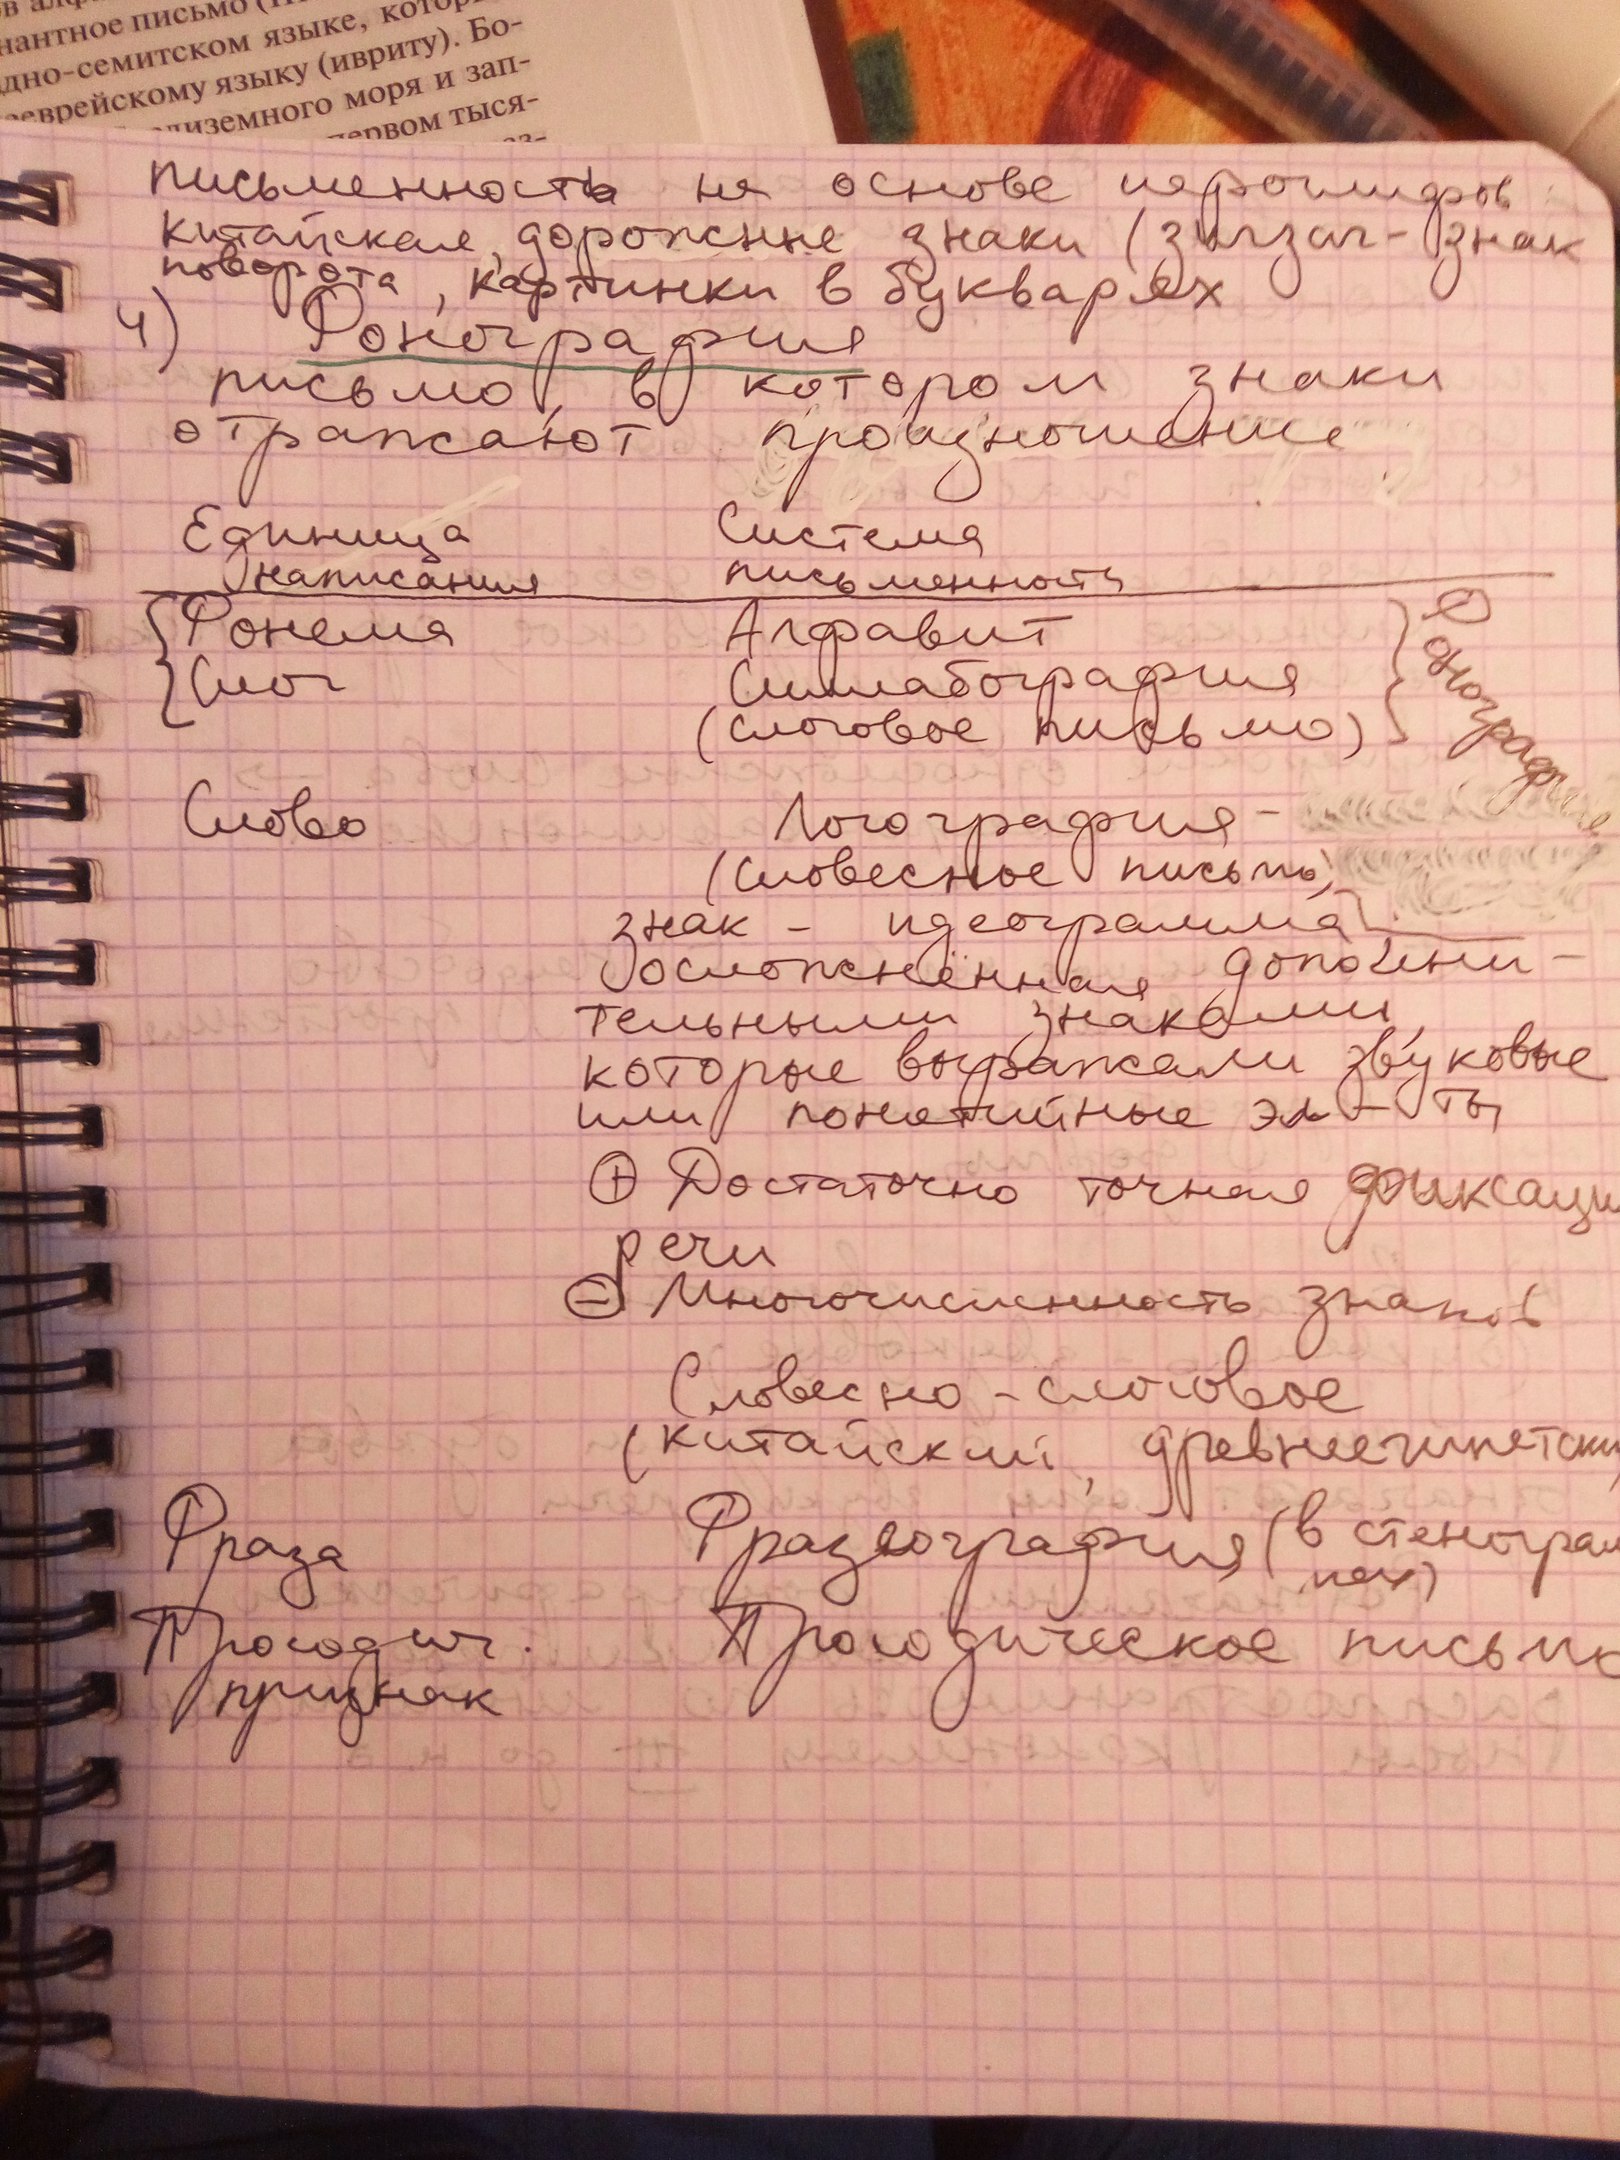 нантное письмо
дно-семитском языке, котор
еврейскому языку (ивриту). Бо-
диземного моря и зап-
первом тыся-
письменность на основе иероглифов
китайская, дорожные знаки (зигзаг - знак
поворота, картинки в букварях
4) Фонография
письмо, в котором знаки
отражают произношение
Единица написания
Система письменность
Фонема Алфавит
Слог Силлабография
(слоговое письмо)
Фонография
Слово Логография -
(словесное письмо)
знак - идеограмма
осложнённая дополни-
тельными знаками,
которые выражали звуковые
или понятийные эл-ты
⊕ Достаточно точная фиксаци
речи
⊖ Многочисленность знаков
Словесно-слоговое
(китайский, древнеегипетски
Фраза Фразеография (в стенограм
мах)
Просодич. Просодическое письмо
признак